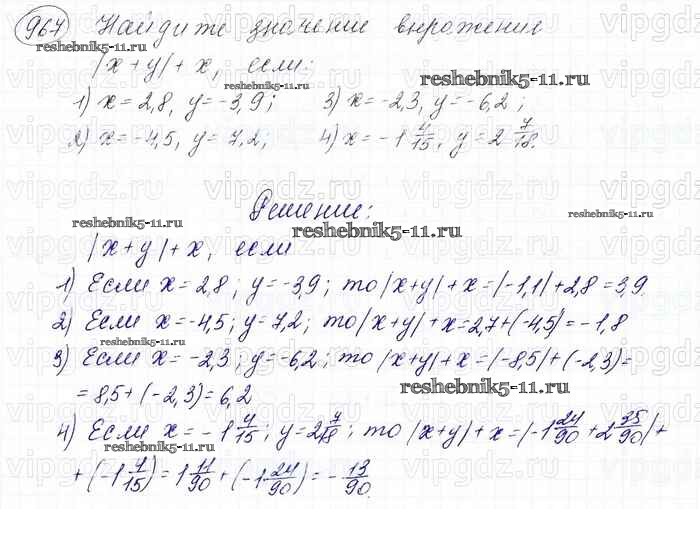 967 Найдите значение выражения
|x+y|+x, если:
1) x=2,8, y=-3,9; 3) x=-2,3, y=-6,2;
2) x=-4,5, y=7,2; 4) x=-1 4/15, y=2 7/18.
Решение:
|x+y|+x, если
1) Если x=2,8; y=-3,9; то |x+y|+x=|-1,1|+2,8=3,9.
2) Если x=-4,5; y=7,2; то |x+y|+x=2,7+(-4,5)=-1,8
3) Если x=-2,3; y=-6,2; то |x+y|+x=|-8,5|+(-2,3)=
=8,5+(-2,3)=6,2
4) Если x=-1 4/15; y=2 7/18; то |x+y|+x=|-1 24/90+2 35/90|+
+(-1 4/15)=1 11/90+(-1 24/90)=-13/90.
reshebnik5-11.ru
reshebnik5-11.ru
reshebnik5-11.ru
reshebnik5-11.ru
reshebnik5-11.ru
reshebnik5-11.ru
reshebnik5-11.ru
reshebnik5-11.ru
reshebnik5-11.ru
vipgdz.ru